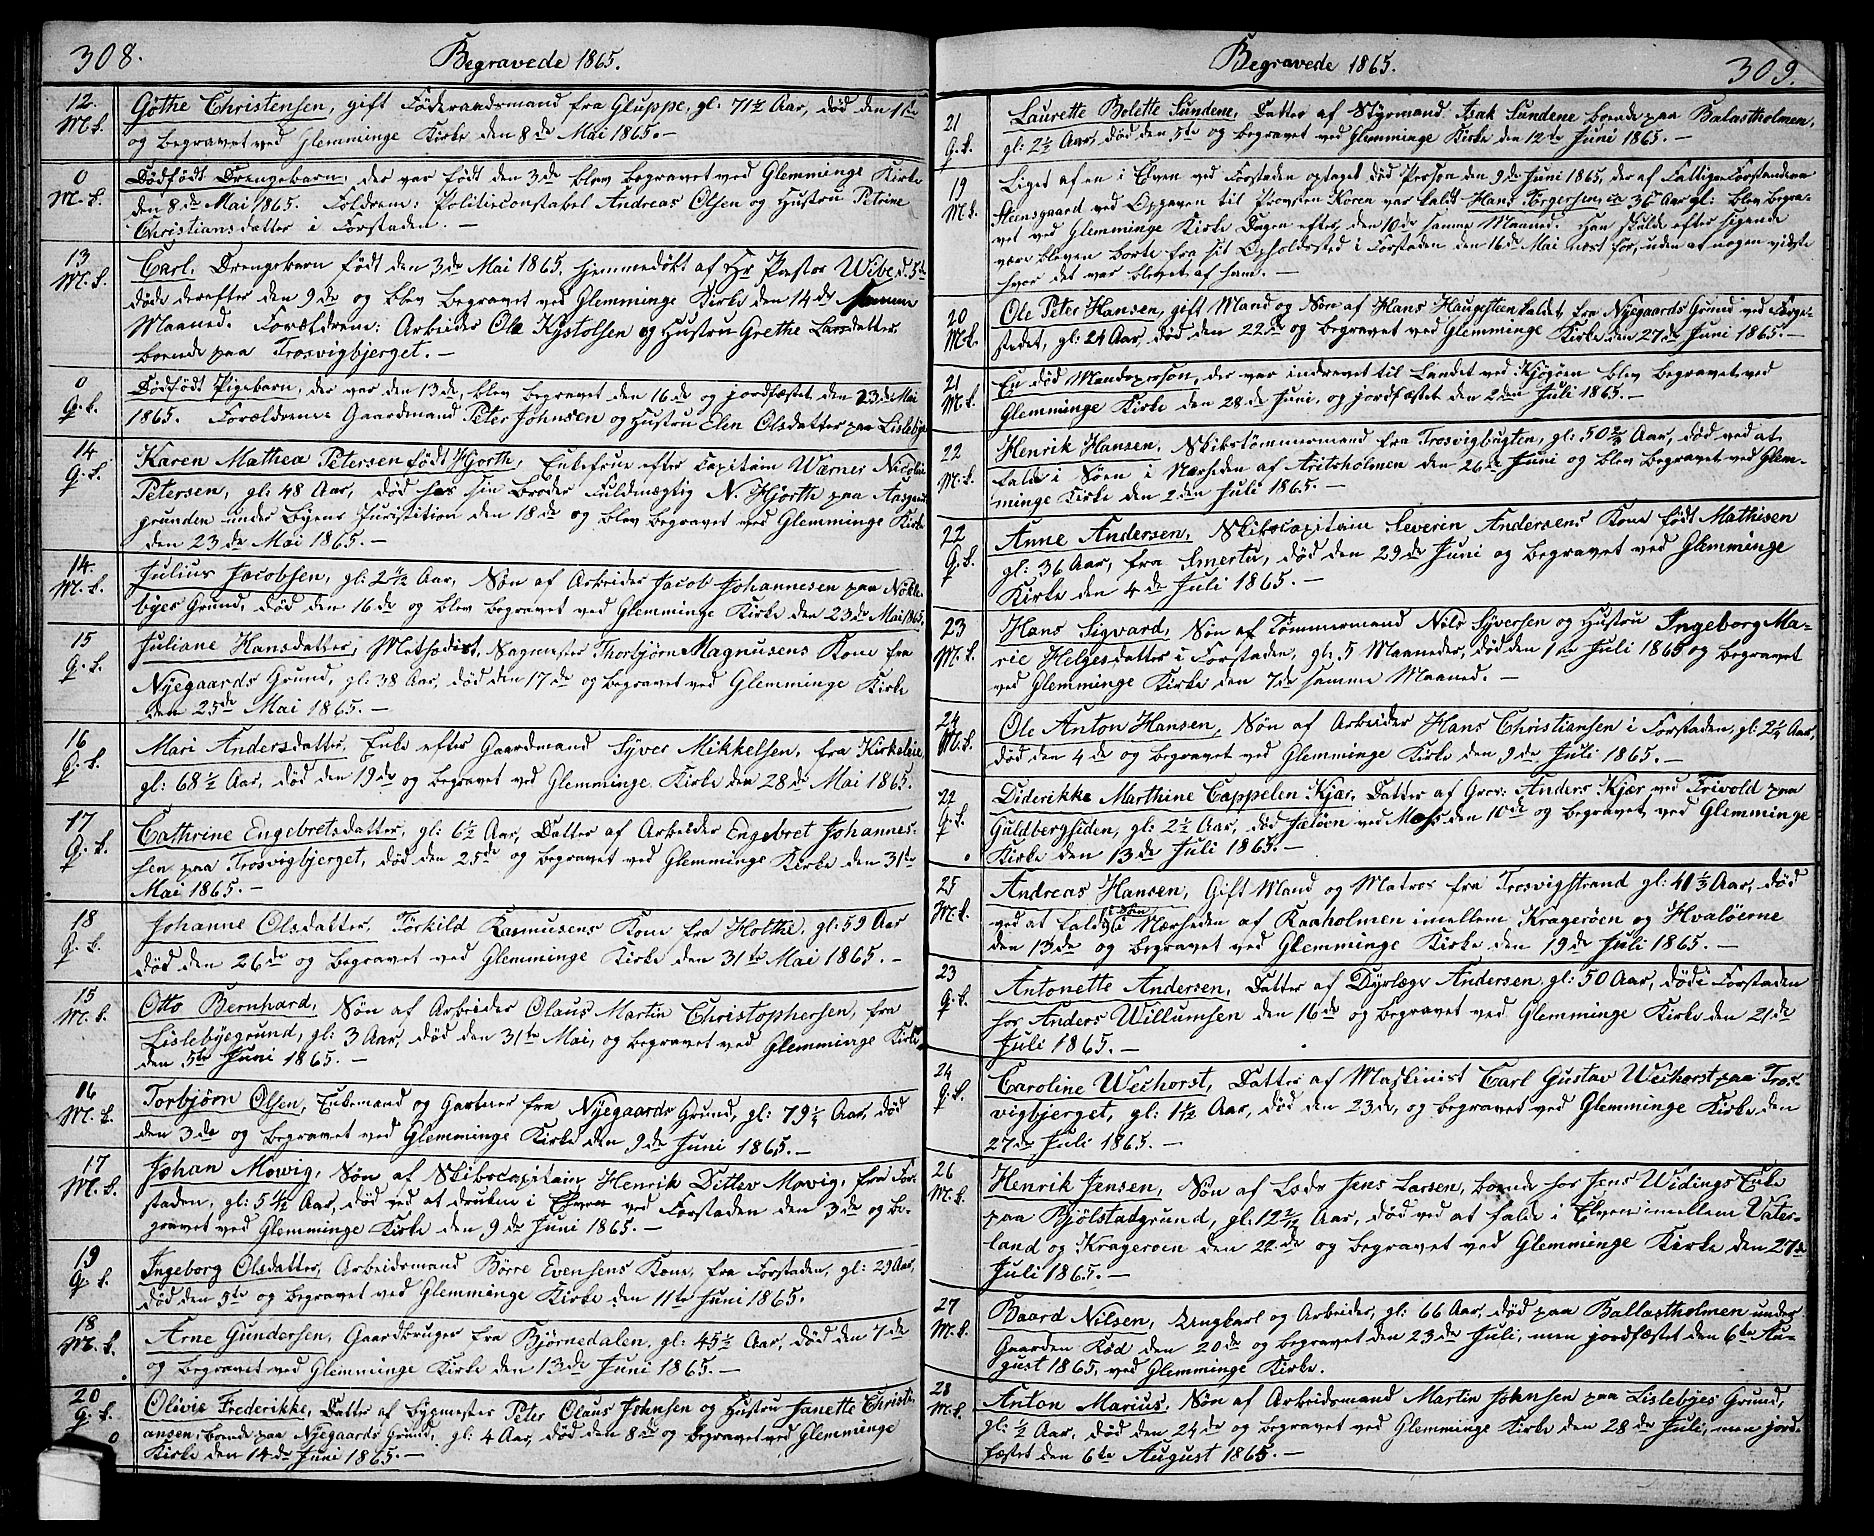 308.
Begravede 1865.
12. M.k. Göthe Christensen, gift Föderaadsmand fra Gluppe, gl: 71½ Aar, död den 1ste
og begravet ved Glemminge Kirke den 8de Mai 1865.—
0 M.k. Dödfödt Drengebarn, der var födt den 3de blev begravet ved Glemminge Kirke
den 8de Mai 1865. Foreldrene: Politieconstabel Andreas Olsen og Hustru Petrine
Christiansdatter i Forstaden.—
13 M.k. Carl, Drengebarn födt den 3de Mai 1865, hjemmedöbt af Hr Pastor Wibe d. 5te
döde derefter den 9de og blev begravet ved Glemminge Kirke den 14de samme
Maaned. Forældrene: Arbeider Ole Kystolsen og Hustru Grethe Larsdatter
boende paa Trosvigbjerget.—
0 Q.k. Dödfödt Pigebarn, der var den 13de, blev begravet den 16de og jordfæstet den 23de Mai
1865. Forældrene Gaardmand Peter Johnsen og Hustru Elen Olsdatter paa Lisleby
14 Q.k. Karen Mathea Petersen födt Hjorth, Enkefrue efter Capitain Warner Nicolai
Petersen, gl: 48 Aar, död hos sin Broder Fuldmægtig N. Hjorth paa Aasgaard
grunden under Byens Juristition den 18de og blev begravet ved Glemminge Kirke
den 23de Mai 1865.—
14. M.k. Julius Jacobsen, gl: 2 Aar, Sön af Arbeider Jacob Johannesen paa Nökle-
byes Grund, död den 16de og blev begravet ved Glemminge Kirke den 23de Mai 1865.
15 Q.k. Juliane Hansdatter, Methodist, Sagmester Thorbjørn Magnusens Kone fra
Nyegaards Grund, gl: 38 Aar, död den 17de og begravet ved Glemminge Kirke
den 25de Mai 1865.—
16 Q.k. Mari Andersdatter, Enke efter Gaardmand Syver Mikkelsen, fra Kirkeleie
gl: 68½ Aar, död den 19de og begravet ved Glemminge Kirke den 28de Mai 1865.
17 Q.k. Cathrine Engebretsdatter, gl: 6½ Aar, Datter af Arbeider Engebret Johanne-
sen paa Trosvigbjerget, död den 25de og begravet ved Glemminge Kirke den 31te
Mai 1865.—
18 Q.k. Johanne Olsdatter, Törkild Rasmusens Kone fra Holthe, gl: 59 Aar
död den 26de og begravet ved Glemminge Kirke den 31te Mai 1865.—
15 M.k. Otto Bernhard, Sön af Arbeider Olaus Martin Christophersen, fra
Lislebyegrund, gl: 3 Aar, död den 31te Mai, og begravet ved Glemminge Kirke
den 5te Juni 1865.—
16 M.k. Torbjørn Olsen, Enkemand og Gartner fra Nyegaards Grund, gl: 79¼ Aar, död
den 3de og begravet ved Glemminge Kirke den 9de Juni 1865.—
17 M.k. Johan Mowig, Sön af Skibscapitain Henrik Ditlev Mowig, fra For-
staden, gl: 5 Aar, död ved at drukne i Elven ved Forstaden den 3de og be-
gravet ved Glemminge Kirke den 9de Juni 1865.—
19 Q.k. Ingeborg Olsdatter, Arbeidsmand Börre Evensens Kone, fra Forstaden, gl: 29 Aar,
död den 5te og begravet ved Glemminge Kirke den 11te Juni 1865.
18 M.k. Arne Gundersen, Gaardbruger fra Björnedalen, gl: 45½ Aar, död den 7de
og begravet ved Glemminge Kirke den 13de Juni 1865.—
20 Q.k. Olivie Frederikke, Datter af Bygmester Peter Olaus Johnsen og Hustru Janette Christi-
ansen, boende paa Nyegaards Grund, gl: 4 Aar, död den 8de og begravet ved Glemminge
Kirke den 14de Juni 1865.—
Begravede 1865.
309.
21 Q.k. Laurette Bolette Sundene, Datter af Styrmand Isak Sundene boende paa Balastholmen,
gl: 2½ Aar, död den 5te og begravet ved Glemminge Kirke den 12te Juni 1865.—
19 M.k. Liget af en i Elven ved Forstaden optaget död Person den 9de Juni 1865, der af Fattig-Forstanderen
Steensgaard ved Opgaven til Provsten Koren var kaldt Hans Torgersen, ca 36 Aar gl: blev begra-
vet ved Glemminge Kirke Dagen efter, den 10de samme Maaned. Han skulde efter sigende
være bleven borte fra sit Opholdssted i Forstaden den 16de Mai næst för, uden at nogen vidste
hvor det var blevet af ham.—
20 M.k. Ole Peter Hansen, gift Mand og Sön af Hans Haugesteen kaldet, fra Nyegaards Grund ved Færge-
stedet, gl: 24 Aar, död den 22de og begravet ved Glemminge Kirke den 27de Juni 1865.—
21 M.k. En död Mandsperson, der var inddrevet til Landet ved Kjøgöen blev begravet ved
Glemminge Kirke den 28de Juni, og jordfæstet den 2den Juli 1865.—
22 M.k. Henrik Hansen, Skibstömmermand fra Trosvigbugten, gl: 50 Aar, död ved at
falde i Söen i Nærheden af Aritsholmen den 26de Juni og blev begravet ved Glem-
minge Kirke den 2den Juli 1865.—
22 Q.k. Anne Andersen, Skibscapitain Severin Andersens Kone födt Mathisen
gl: 36 Aar, fra Smertu, död den 29de Juni og begravet ved Glemminge
Kirke den 4de Juli 1865.—
23 M.k. Hans Sigvard, Sön af Tömmermand Nils Syversen og Hustru Ingeborg Ma-
rie Helgesdatter i Forstaden, gl: 5 Maaneder, död den 1ste Juli 1865 og begravet
ved Glemminge Kirke den 7de samme Maaned.—
24 M.k. Ole Anton Hansen, Sön af Arbeider Hans Christiansen i Forstaden, gl: 2¼ Aar,
död den 4de og begravet ved Glemminge Kirke den 9de Juli 1865.—
22 Q.k. Diderikke Marthine Cappelen Kjær, Datter af Gros: Anders Kjær ved Frivold paa
Guldbergsiden, gl: 2½ Aar, död Jælöen ved Moss den 10de og begravet ved Glemminge
Kirke den 13de Juli 1865.—
25 M.k. Andreas Hansen, Gift Mand og Matros fra Trosvigstrand gl: 41⅓ Aar, död
ved at falde i Söen i Nærheden af Raaholmen imellem Kragerøen og Hvaløerne
den 13de og begravet ved Glemminge Kirke den 19de Juli 1865.—
23 Q.k. Antonette Andersen, Datter af Dyrlæge Andersen, gl: 50 Aar, död i Forstaden
hos Anders Willumsen den 16de og begravet ved Glemminge Kirke den 21de
Juli 1865.—
24 Q.k. Caroline Weihorst, Datter af Maskinist Carl Gustav Weihorst paa Tros-
vigbjerget, gl: 1½ Aar, död den 23de, og begravet ved Glemminge Kirke den
27de Juli 1865.—
26 M.k. Henrik Jensen, Sön af Lods Jens Larsen, boende hos Jens Widings Enke
paa Bjölstadgrund, gl: 12 Aar, död ved at falde i Elven imellem Vater-
land og Krageroen den 22de og begravet ved Glemminge Kirke den 27de
Juli 1865.—
27 M.k. Baard Nilsen, Ungkarl og Arbeider, gl: 66 Aar, död paa Ballastholmen under
Gaarden Kæd den 20de og begravet den 23de Juli, men jordfæstet den 6te Au-
gust 1865, ved Glemminge Kirke.
28 M.k. Anton Marius, Sön af Arbeidsmand Martin Johnsen paa Lislebyes Grund,
gl: ½ Aar, död den 24de og begravet ved Glemminge Kirke den 28de Juli, men jord-
fæstet den 6te August 1865.—